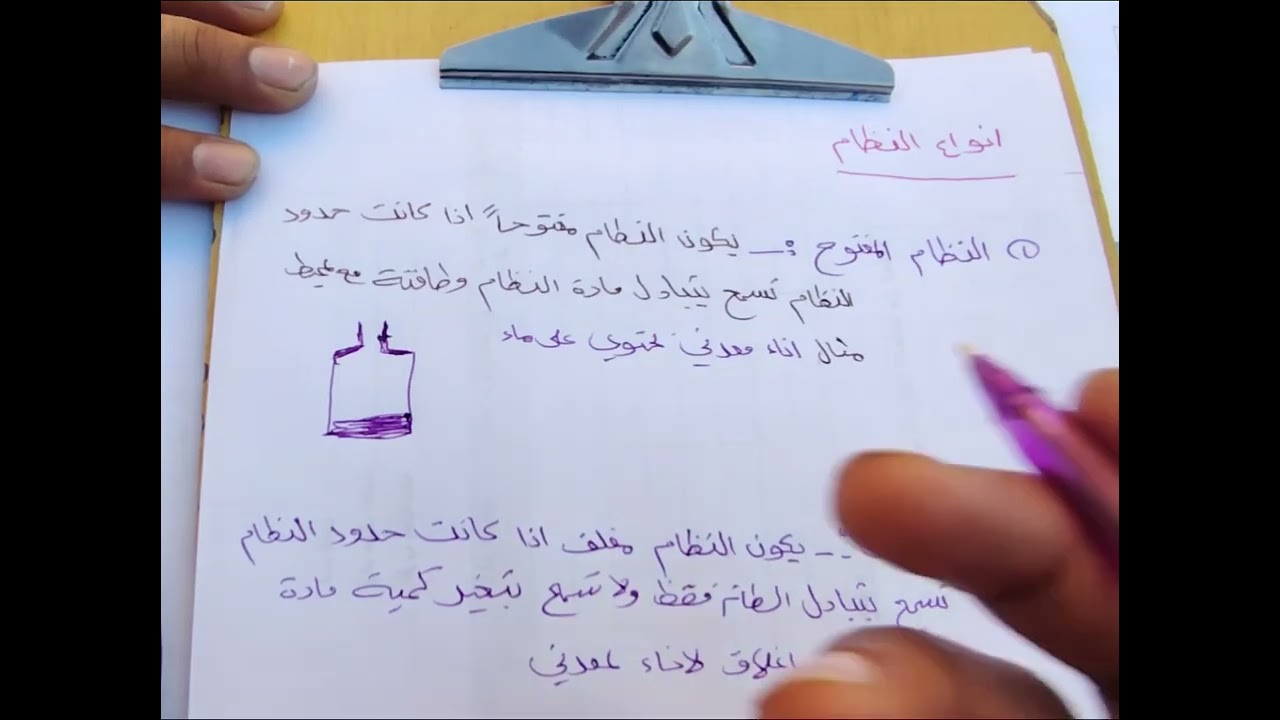 انواع النظام
① النظام المفتوح :ـ يكون النظام مفتوحاً اذا كانت حدود
النظام تسمح بتبادل مادة النظام وطاقتة مع محيط
مثال اناء معدني يحتوي على ماء
:ـ يكون النظام مغلف اذا كانت حدود النظام
تسمح بتبادل الطاقة فقط ولا تسمح بتغير كمية مادة
اغلاق لاناء لمعدني